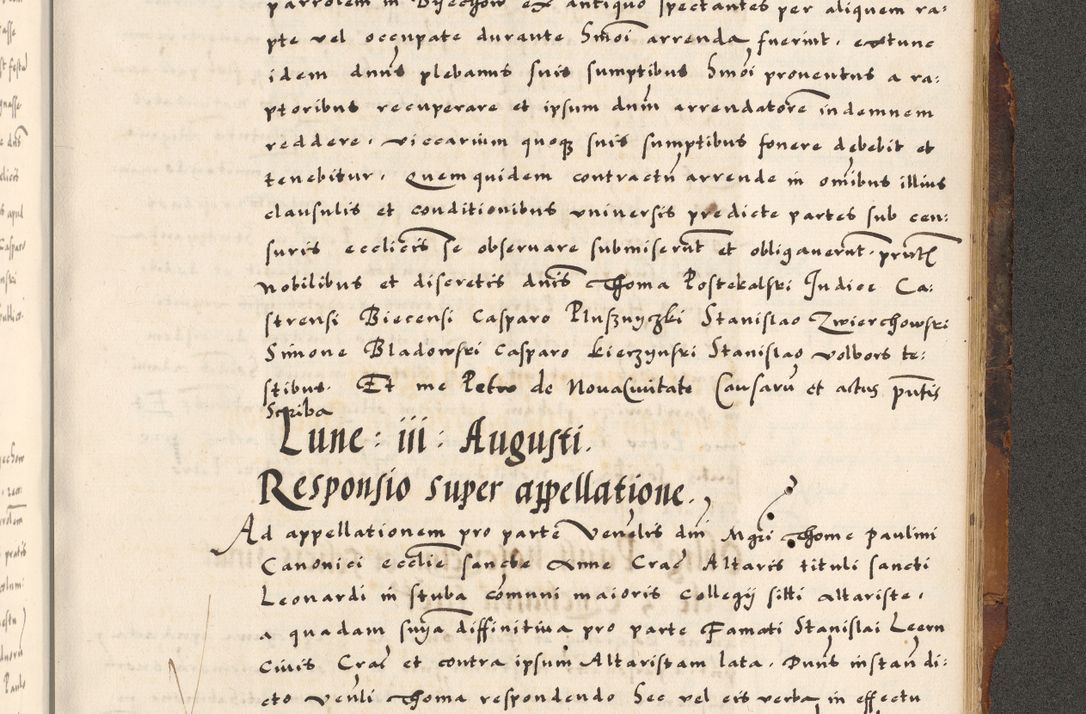 parrotem in Byechow ex antiquo spectantes per aliquem ra:
pte vel occupate durante Smoi arrenda fuerint. extunc
idem dnus plebanus suis sumptibus Smoi proventus a ra:
ptoribus recuperare et ipsum dnm arrendatore indemnem
reddere. viccarium quoque suis sumptibus fonere debebit et
tenebitur. Quemquidem contractu arrende in omibus illius
clausulis et conditionibus universis predicte partes sub cen:
suris ecclicis se observare submiserut et obligaverut. pntib
Nobilibus et discretis dnis Thoma Rostekalski Judice Ca:
strensi Biecensi Casparo Plusznyczki Stanislao Zwierchowski
Simone Bladowski Casparo kierzynski Stanislao volbors te:
stibus. Et me Petro de Novacivitate Causaru et actus pntis
Scriba
Lune : iii : Augusti.
Responsio super appellatione.
Ad appellationem pro parte Venelis dni Mgri Thome Paulini
Canonici ecclie sancte Anne Crac Altaris tituli sancti
Leonardi in stuba comuni maioris Collegij siti altariste.
a quadam snya diffinitiva pro parte Famati Stanislai Leern
Civis Crac et contra ipsum Altaristam lata. Duns instan di:
cto venli Thoma respondendo Sec vel eis verba in effectu